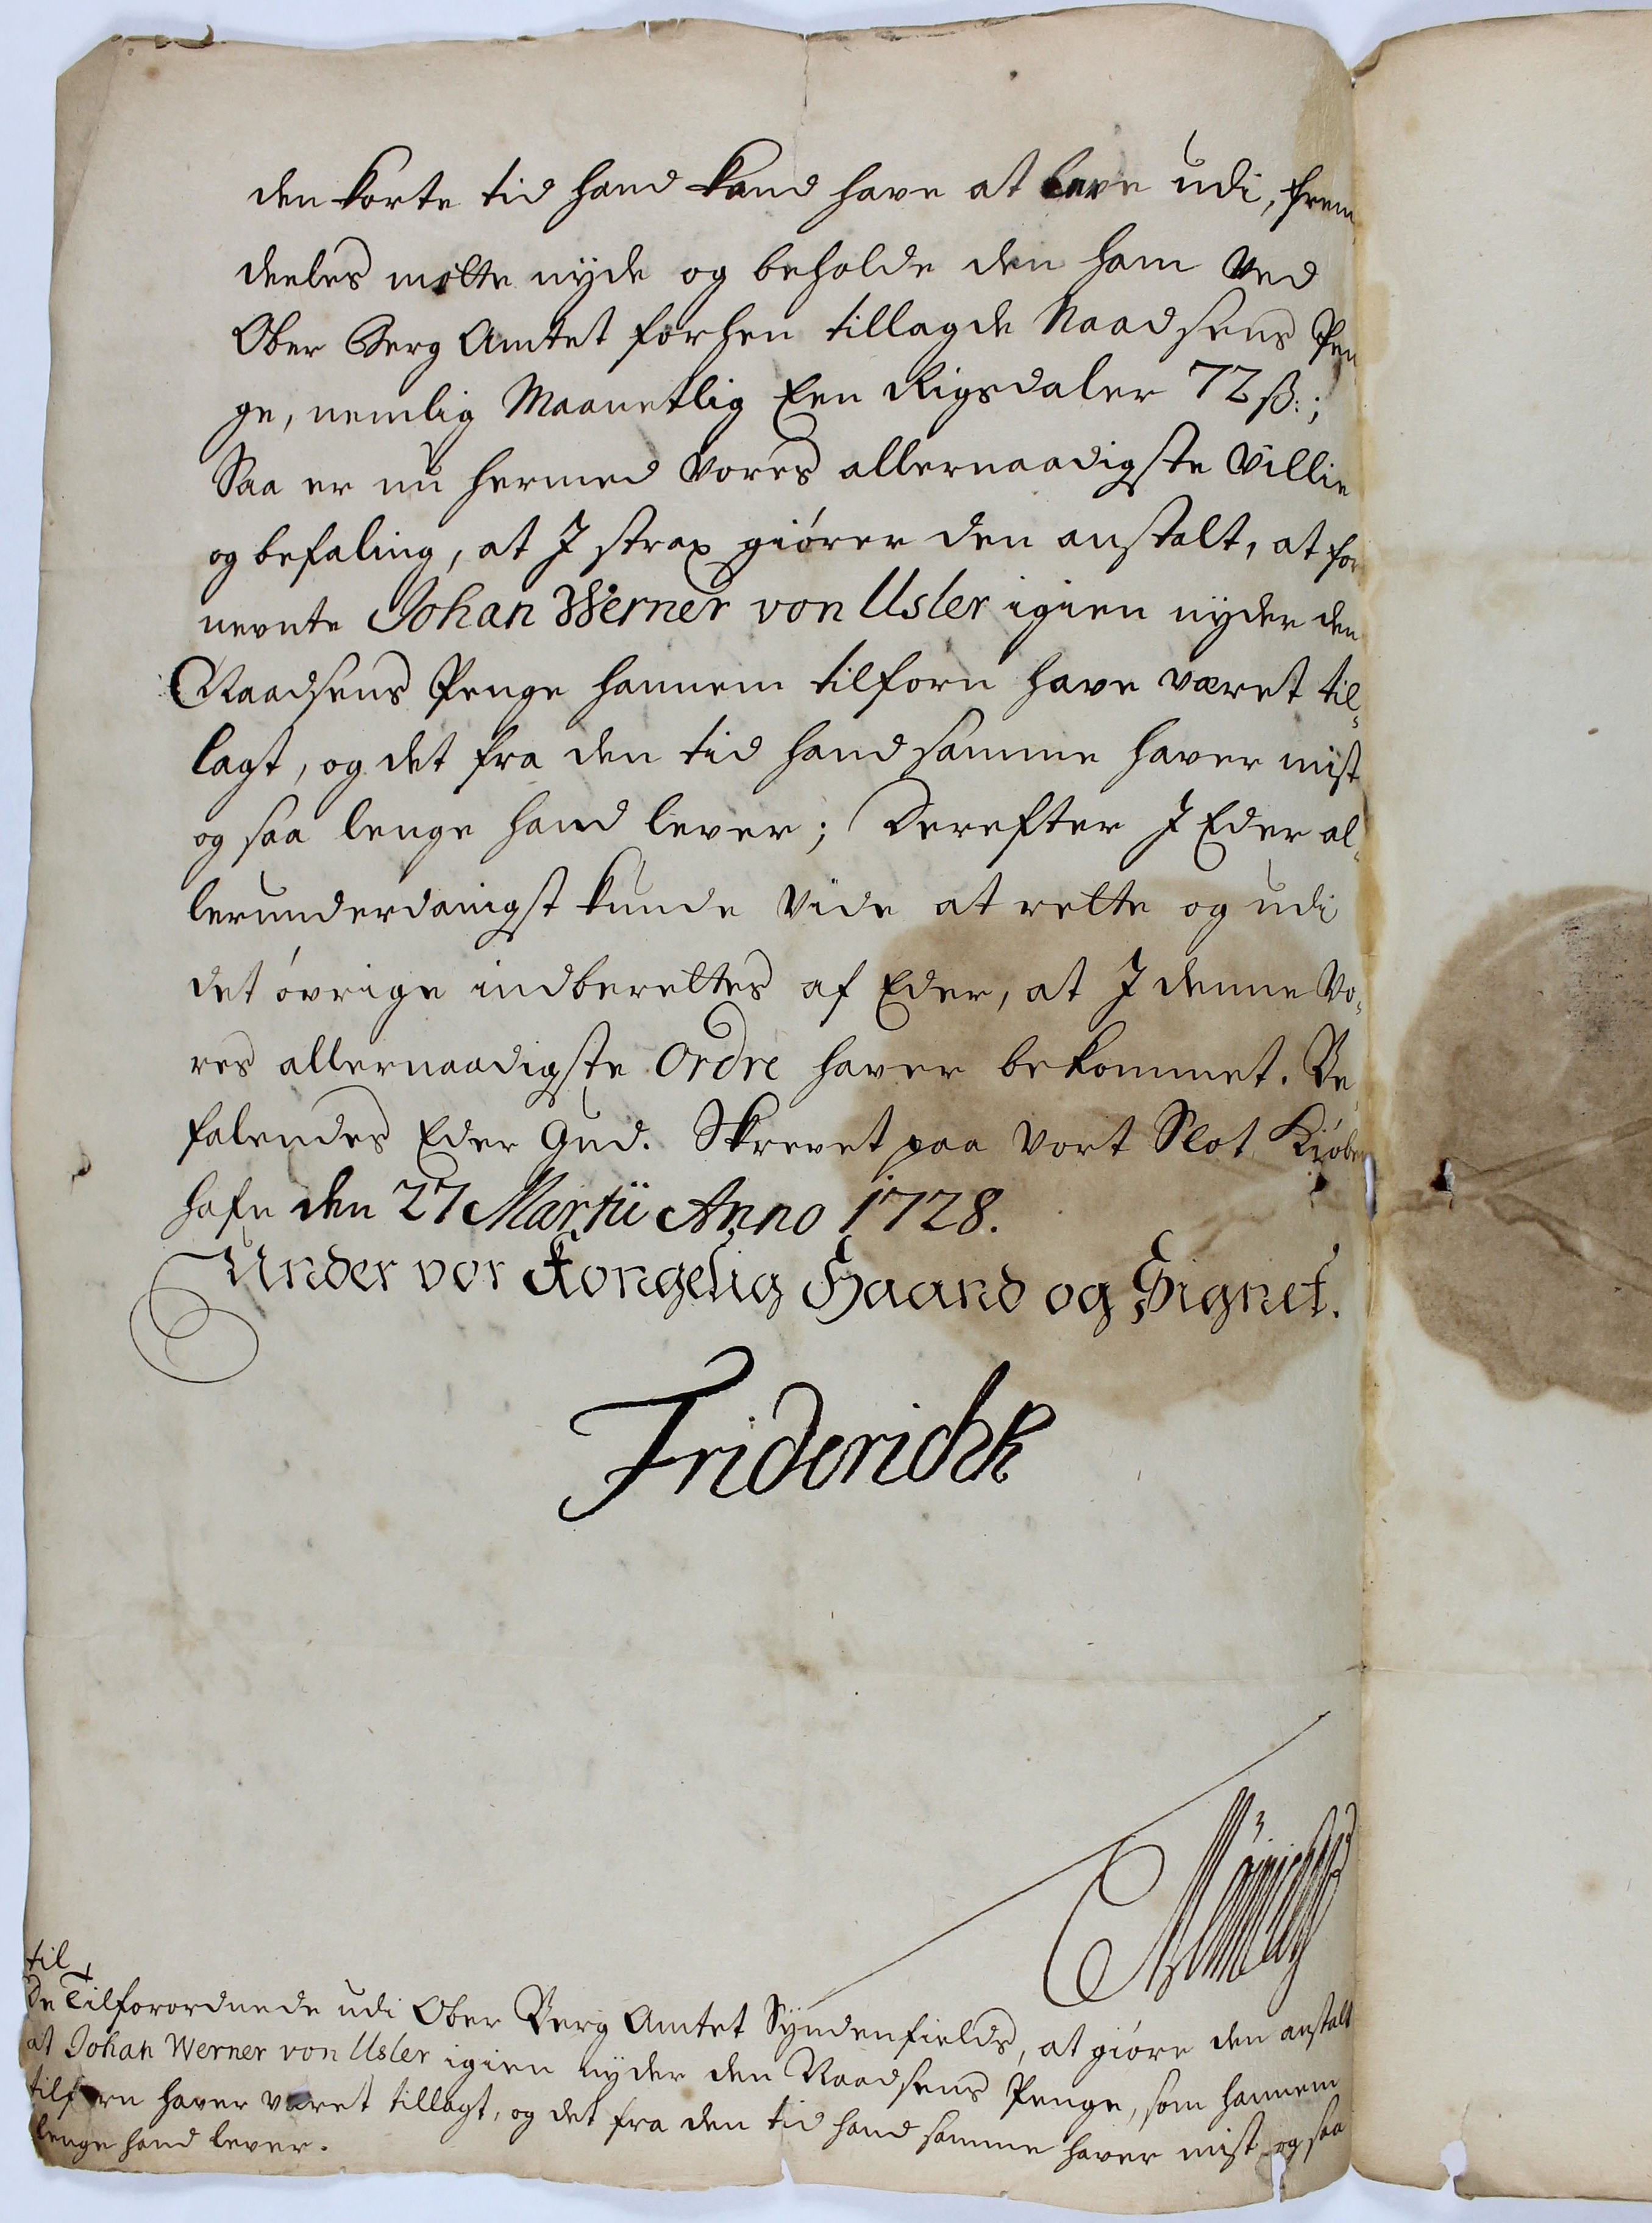 den korte tid hand kand have at leve udi, frem
deeles motte nyde og beholde den ham ved
Ober Berg Amtet forhen tillagde Naadsens Pen
ge, nemlig Maanetlig Een Rigsdaler 72 ß:;
Saa er nu hermed Vores allernaadigste Villie
og befaling, at I strax giörer den anstalt, at for
nevnte Johan Werner von Usler igien nyder den
Naadsens Penge hannem tilforn have været til-
lagt, og det fra den tid hand samme haver mist
og saa lenge hand lever; Derefter I Eder al-
lerunderdanigst kunde vide at rette og udi
det övrige indberettes af Eder, at I denne Vo-
res allernaadigste Ordre haver bekommet. Be
falendes Eder Gud. Skrevet paa Vort Slot Kiöben
hafn den 27 Martii Anno 1728.
Under vor Kongelig Haand og Signet.
Friderich R
til
De Tilforordnede udi Ober Berg Amtet Syndenfields, at giöre den anstalt
at Johan Werner von Usler igien nyder den Naadsens Penge, som hannem
tilforn haver været tillagt, og det fra den tid hand samme haver mist og saa
lenge hand lever.